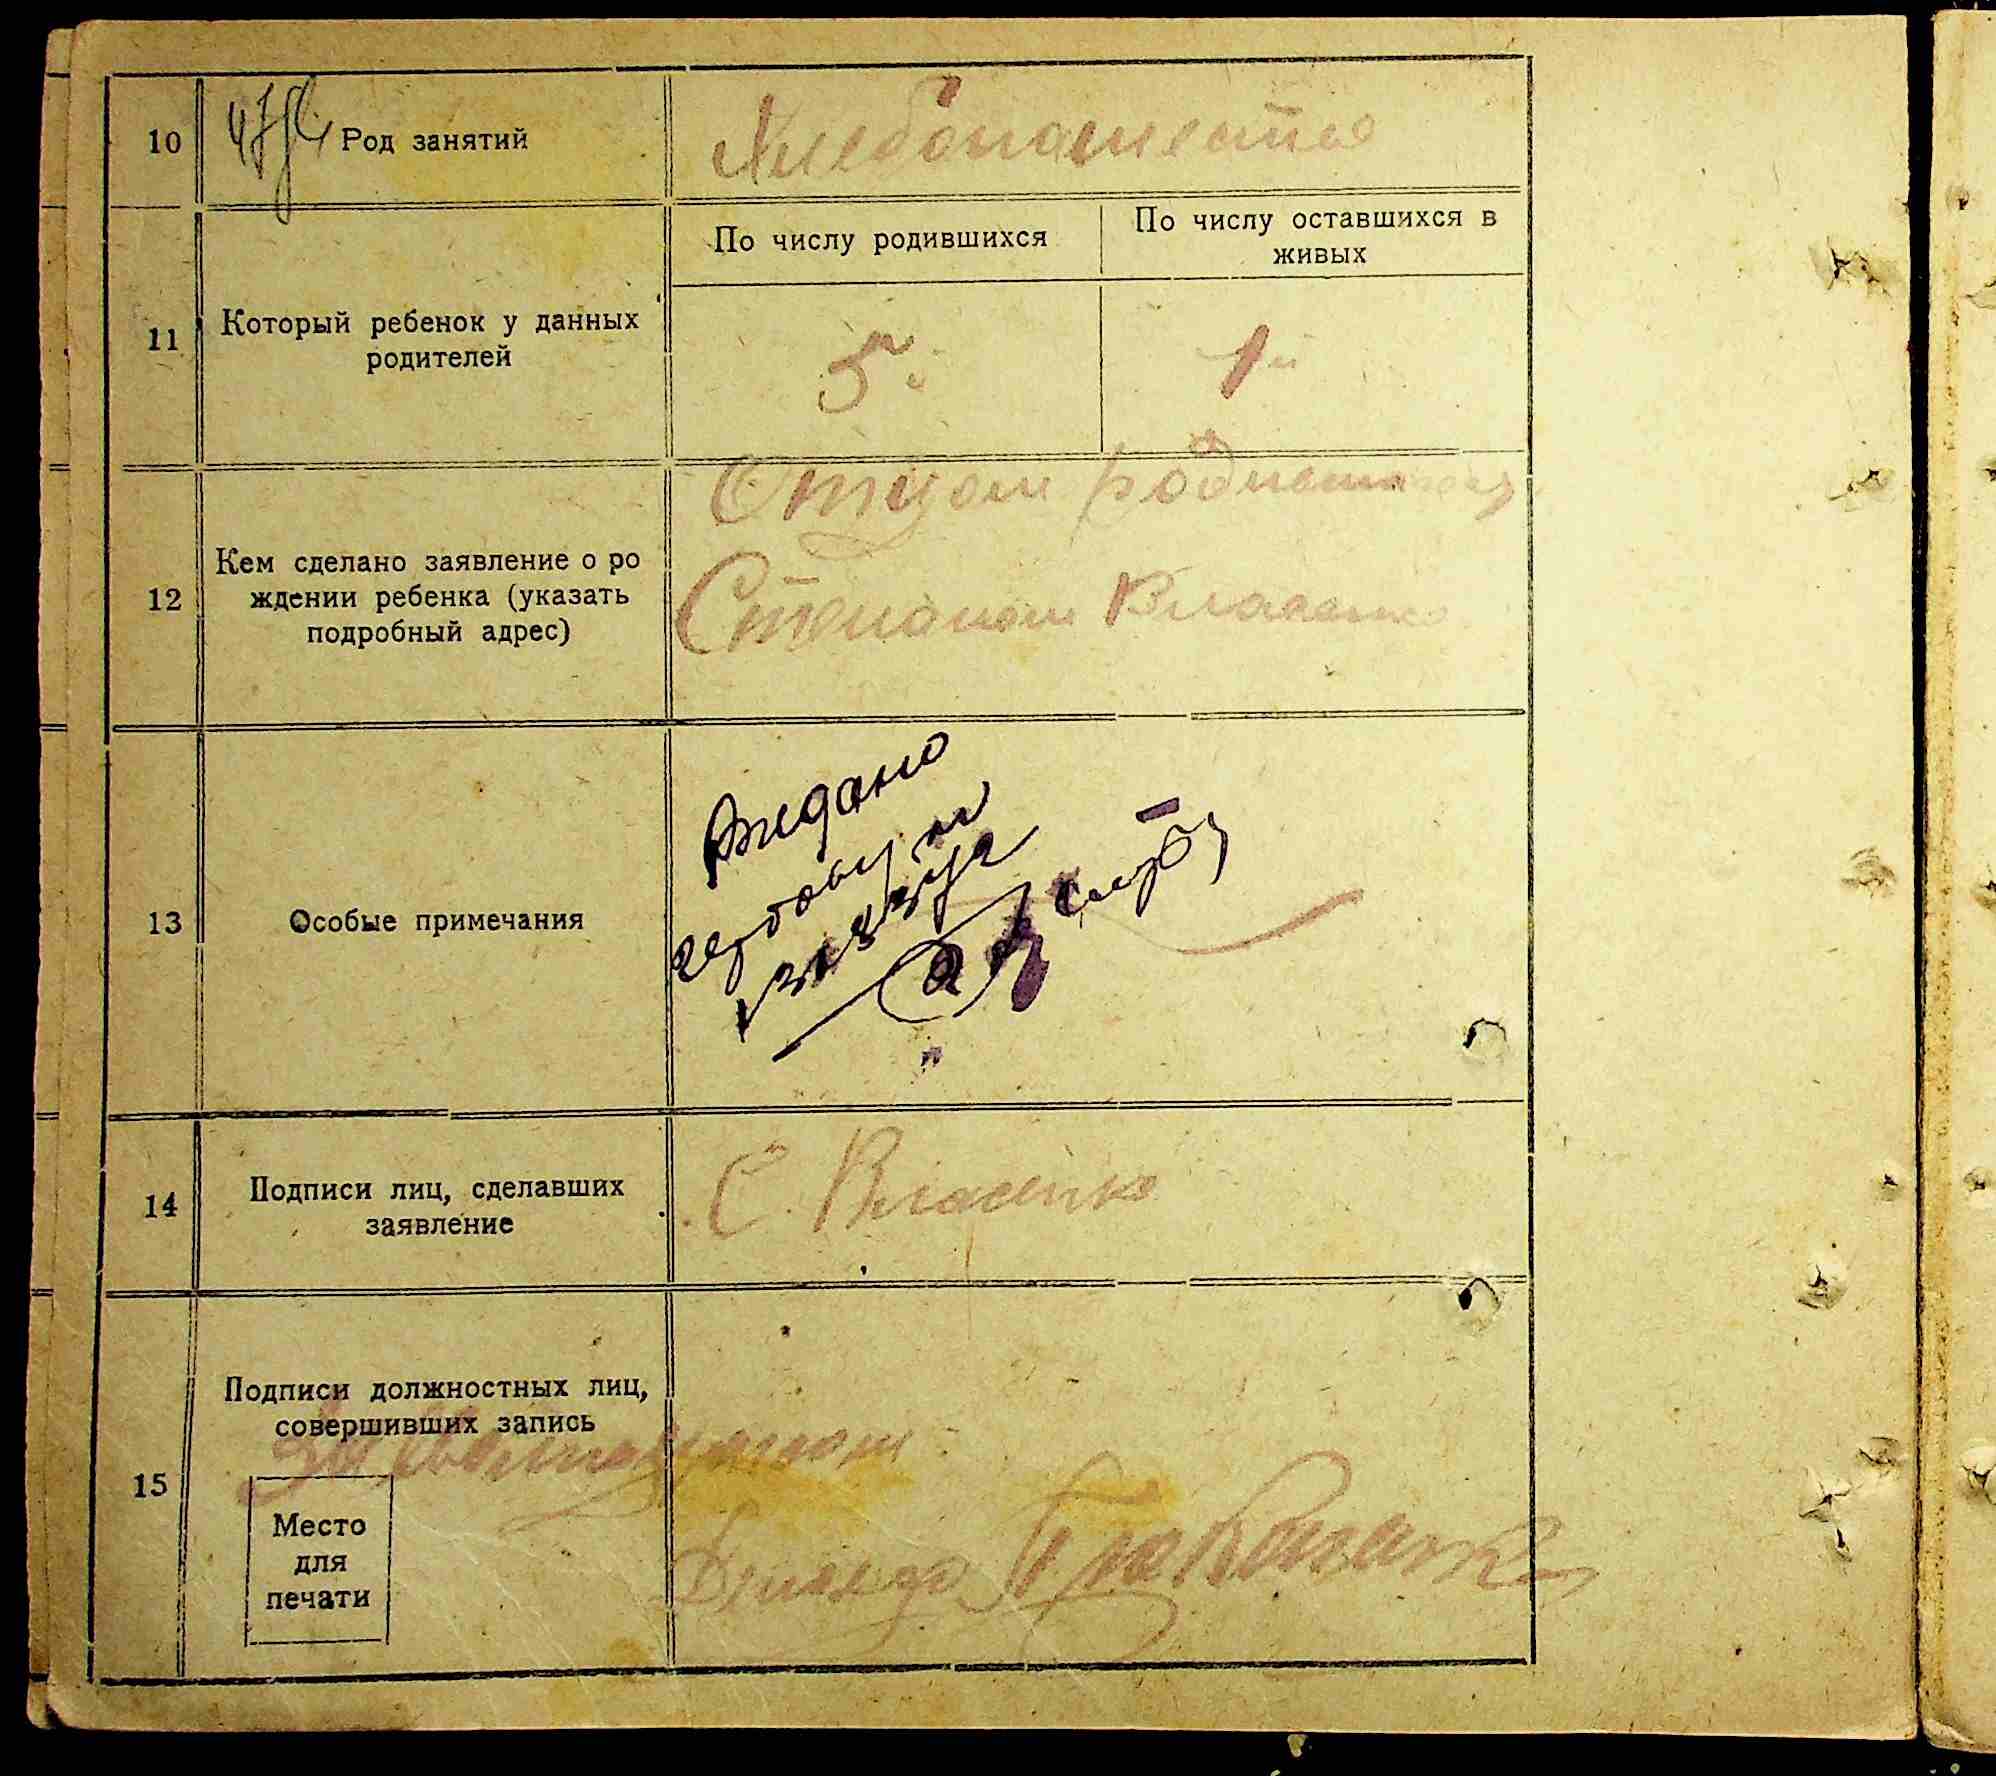 10
Род занятий
Хлебопашество
11
Который ребенок у данных
родителей
По числу родившихся
По числу оставшихся в
живых
5й
1й
12
Кем сделано заявление о ро
ждении ребенка (указать
подробный адрес)
Отцом
Степаном Власенко
13
Особые примечания
Видано
14
Подписи лиц, сделавших
заявление
С. Власенко
15
Подписи должностных лиц,
совершивших запись
Место
для
печати